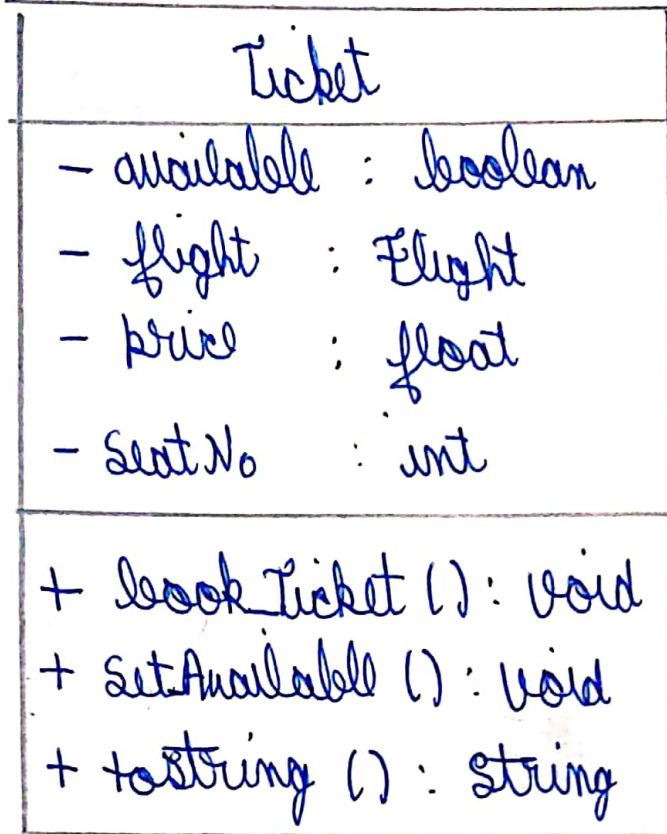 Ticket
- available : boolean
- flight : Flight
- price : float
- SeatNo : int
+ book_Ticket () : void
+ setAvailable () : void
+ toString () : string